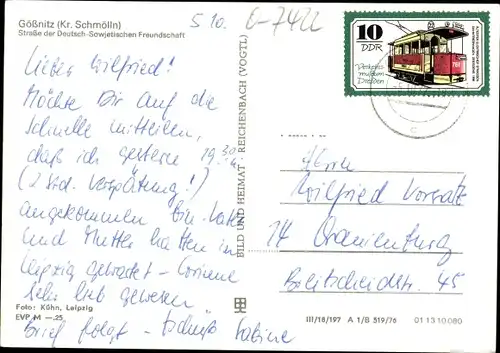 Gößnitz (Kr. Schmölln)
Straße der Deutsch-Sowjetischen Freundschaft
5 10.
E-7422
Lieber Wilfried!
Möchte Dir auf die
Schnelle mitteilen,
daß ich gestern 19.30
(2 Std. Verspätung!)
angekommen bin. Vater
und Mutter hatten in
Leipzig gewartet - Corinne
sehr lieb gewesen
Brief folgt - tschüß Sabine
Foto: Kühn, Leipzig
EVP M —.25
BILD UND HEIMAT · REICHENBACH (VOGTL)
10
DDR
Verkehrs
museum
Dresden
Herrn
Wilfried Vorsatz
14 Oranienburg
Breitscheidstr. 45
III/18/197 A 1/B 519/76 01 13 10 080